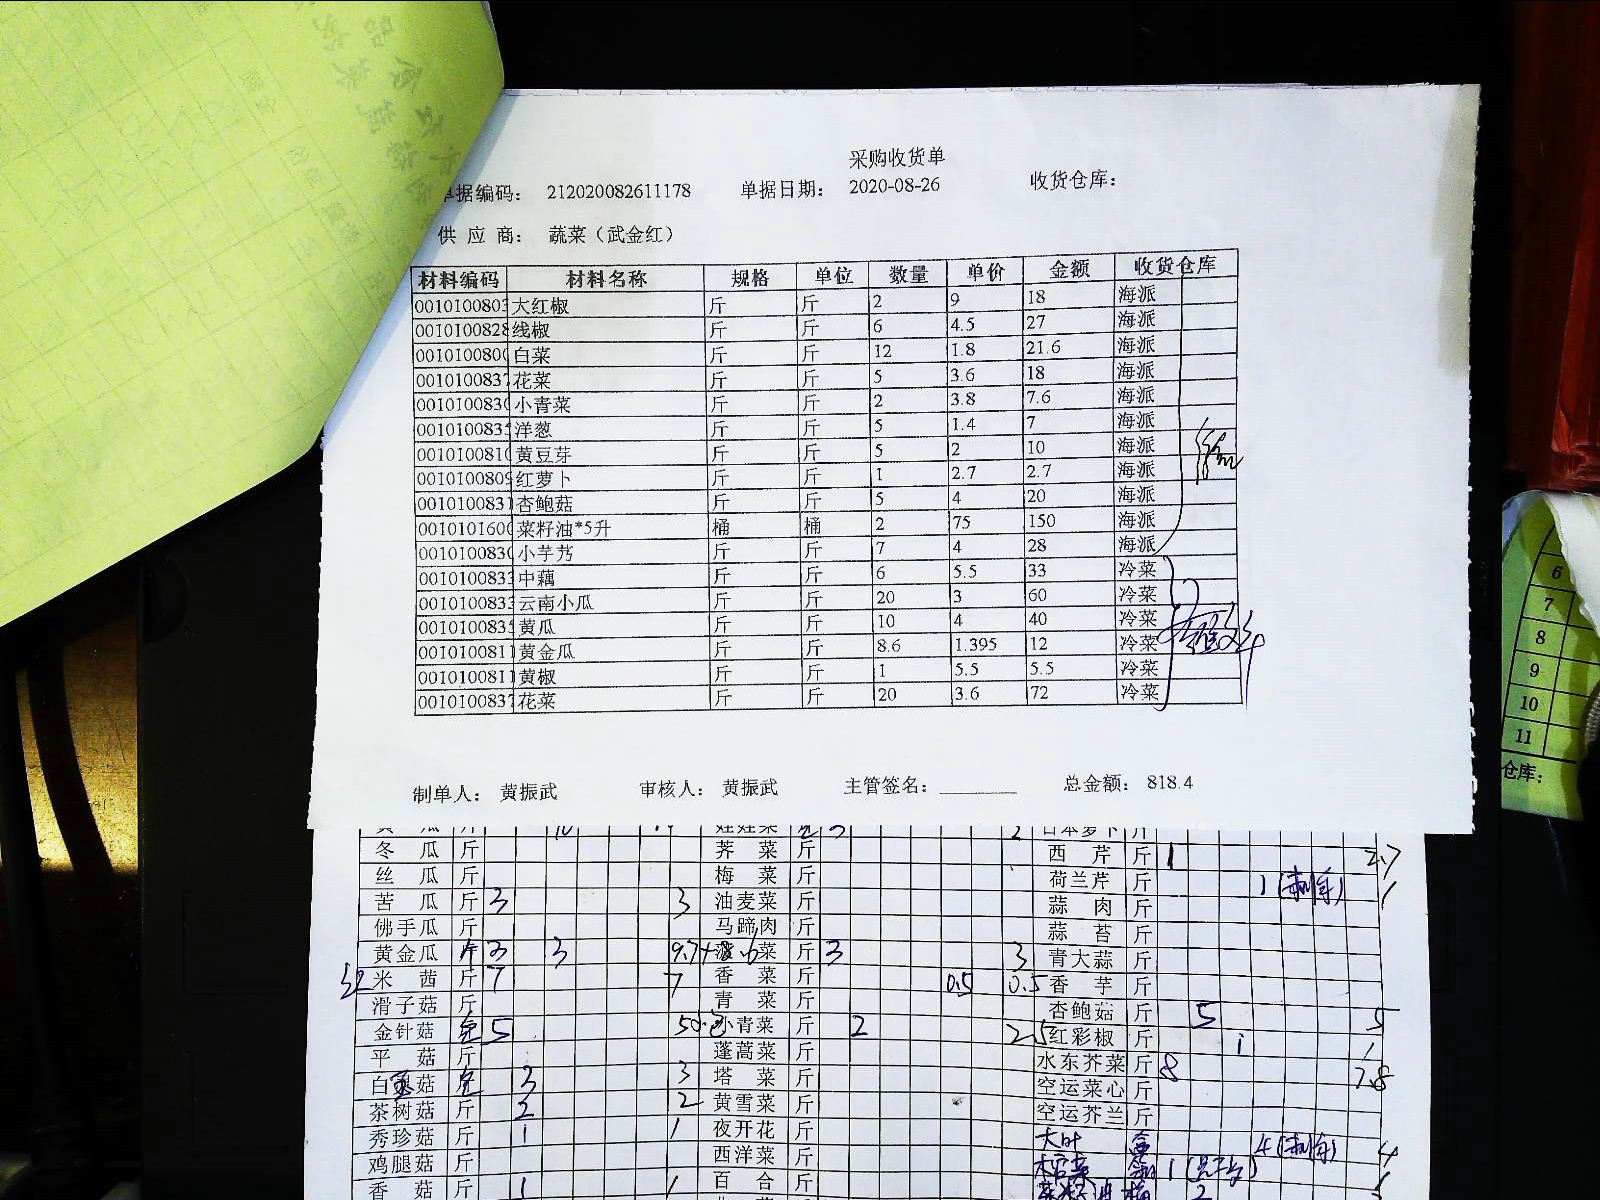 采购收货单
单据编码： 212020082611178 单据日期： 2020-08-26 收货仓库：
供 应 商： 蔬菜（武金红）
材料编码 材料名称 规格 单位 数量 单价 金额 收货仓库
001010080 大红椒 斤 斤 2 9 18 海派
0010100828 线椒 斤 斤 6 4.5 27 海派
001010080 白菜 斤 斤 12 1.8 21.6 海派
001010083 花菜 斤 斤 5 3.6 18 海派
001010083 小青菜 斤 斤 2 3.8 7.6 海派
001010083 洋葱 斤 斤 5 1.4 7 海派
001010081 黄豆芽 斤 斤 5 2 10 海派
0010100809 红萝卜 斤 斤 1 2.7 2.7 海派
001010083 杏鲍菇 斤 斤 5 4 20 海派
001010160 菜籽油*5升 桶 桶 2 75 150 海派
001010083 小芋艿 斤 斤 7 4 28 海派
001010083 中藕 斤 斤 6 5.5 33 冷菜
001010083 云南小瓜 斤 斤 20 3 60 冷菜
001010083 黄瓜 斤 斤 10 4 40 冷菜
001010081 黄金瓜 斤 斤 8.6 1.395 12 冷菜
001010081 黄椒 斤 斤 1 5.5 5.5 冷菜
001010083 花菜 斤 斤 20 3.6 72 冷菜
制单人： 黄振武 审核人： 黄振武 主管签名： 总金额： 818.4
冬 瓜 斤 荠 菜 斤 西 芹 斤 1 2.7
丝 瓜 斤 梅 菜 斤 荷兰芹 斤 1 1
苦 瓜 斤 3 3 油麦菜 斤 蒜 肉 斤
佛手瓜 斤 马蹄肉 斤 蒜 苔 斤
黄金瓜 斤 3 3 菠 菜 斤 3 3 青大蒜 斤
米 茜 斤 7 7 香 菜 斤 0.5 0.5 香 芋 斤
滑子菇 斤 青 菜 斤 杏鲍菇 斤 5 5
金针菇 5 小青菜 斤 2 红彩椒 斤 1 1
平 菇 斤 蓬蒿菜 斤 水东芥菜 斤 8 7.8
白玉菇 3 3 塔 菜 斤 空运菜心 斤
茶树菇 斤 2 2 黄雪菜 斤 空运芥兰 斤
秀珍菇 斤 1 1 夜开花 斤 大叶 4 4
鸡腿菇 斤 西洋菜 斤 1
香 菇 斤 1 1 百 合 斤 2
6
7
8
9
10
11
仓库：